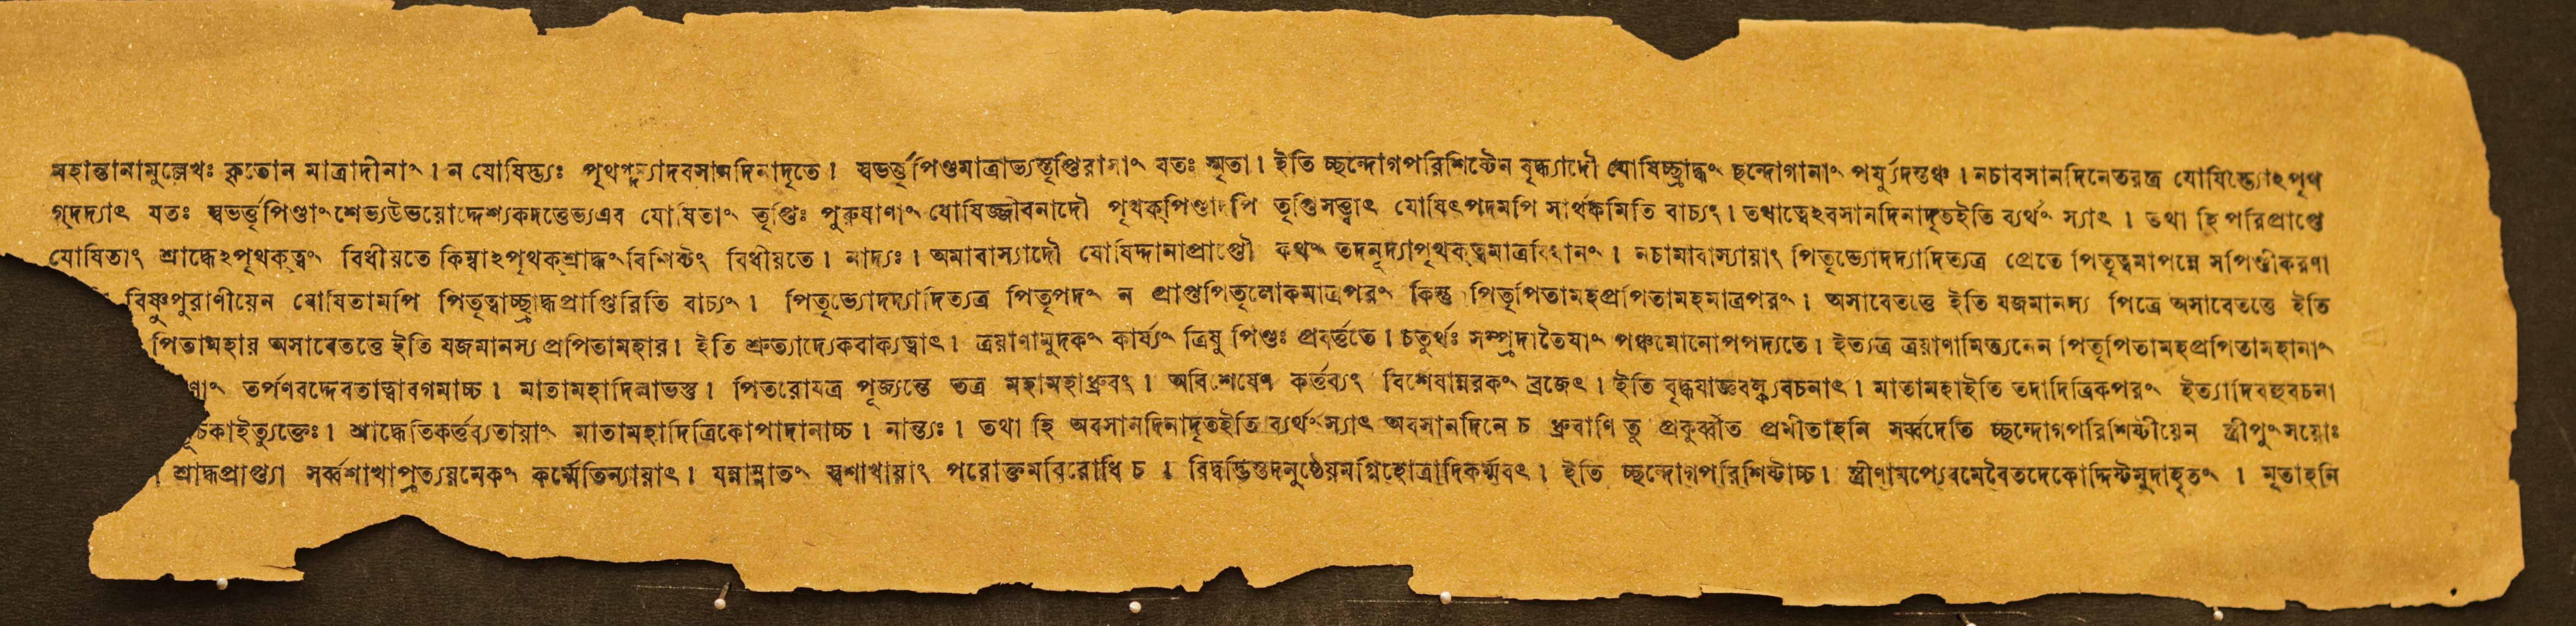 মহান্তানামুল্লেখঃ কুতোন মাত্রাদীনাং । ন যোষিদ্ভ্যঃ পৃথগ্দদ্যাদবসানদিনাদৃতে । স্বভর্ত্তৃপিণ্ডমাত্রাভ্যস্তৃপ্তিরাসাং যতঃ স্মৃতা । ইতি চ্ছন্দোগপরিশিষ্টেন বৃদ্ধ্যাদৌ যোষিচ্ছ্রাদ্ধং ছন্দোগানাং পর্য্যুদস্তঞ্চ । নচাবসানদিনেতরত্র যোষিদ্ভ্যোঽপৃথ
গ্দদ্যাৎ যতঃ স্বভর্ত্তৃপিণ্ডাংশেভ্যউভয়োদ্দেশ্যকদত্তেভ্যএব যোষিতাং তৃপ্তিঃ পুরুষাণাং যোষিজ্জীবনাদৌ পৃথক্পিণ্ডাদপি তৃপ্তিসত্ত্বাৎ যোষিৎপদমপি সার্থকমিতি বাচ্যং । তথাত্বেঽবসানদিনাদৃতইতি ব্যর্থং স্যাৎ । তথা হি পরিপ্রাপ্তে
যোষিতাং শ্রাদ্ধেঽপৃথক্ত্বং বিধীয়তে কিম্বাঽপৃথক্শ্রাদ্ধং বিশিষ্টং বিধীয়তে । নাদ্যঃ । অমাবাস্যাদৌ যোষিদ্দানাপ্রাপ্তৌ কথং তদনূদ্যাপৃথক্ত্বমাত্রবিধানং । নচামাবাস্যায়াং পিতৃভ্যোদদ্যাদিত্যত্র প্রেতে পিতৃত্বমাপন্নে সপিণ্ডীকরণা
বিষ্ণুপুরাণীয়েন যোষিতামপি পিতৃত্বাচ্ছ্রাদ্ধপ্রাপ্তিরিতি বাচ্যং । পিতৃভ্যোদদ্যাদিত্যত্র পিতৃপদং ন প্রাপ্তপিতৃলোকমাত্রপরং কিন্তু পিতৃপিতামহপ্রপিতামহমাত্রপরং । অসাবেতত্তে ইতি যজমানস্য পিত্রে অসাবেতত্তে ইতি
পিতামহায় অসাবেতত্তে ইতি যজমানস্য প্রপিতামহায় । ইতি শ্রুত্যাদ্যেকবাক্যত্বাৎ । ত্রয়াণামুদকং কার্য্যং ত্রিষু পিণ্ডঃ প্রবর্ত্ততে । চতুর্থঃ সম্প্রদাতৈষাং পঞ্চমোনোপপদ্যতে । ইত্যত্র ত্রয়াণামিত্যনেন পিতৃপিতামহপ্রপিতামহানাং
ণাং তর্পণবদ্দেবতাত্বাবগমাচ্চ । মাতামহাদিলাভস্তু । পিতরোযত্র পূজ্যন্তে তত্র মহামহাধ্রুবং । অবিশেষেণ কর্ত্তব্যং বিশেষান্নরকং ব্রজেৎ । ইতি বৃদ্ধযাজ্ঞবল্ক্যবচনাৎ । মাতামহাইতি তদাদিত্রিকপরং ইত্যাদিবহুবচনা
সূচকাইত্যুক্তেঃ । শ্রাদ্ধেতিকর্ত্তব্যতায়াং মাতামহাদিত্রিকোপাদানাচ্চ । নান্ত্যঃ । তথা হি অবসানদিনাদৃতইতি ব্যর্থংস্যাৎ অবসানদিনে চ ধ্রুবাণি তু প্রকুর্ব্বীত প্রমীতাহনি সর্ব্বদেতি চ্ছন্দোগপরিশিষ্টীয়েন স্ত্রীপুংসয়োঃ
শ্রাদ্ধপ্রাপ্ত্যা সর্ব্বশাখাপ্রত্যয়মেকং কর্ম্মেতিন্যায়াৎ । যন্নাম্নাতং স্বশাখায়াং পরোক্তমবিরোধি চ । বিদ্বদ্ভিস্তদনুষ্ঠেয়মগ্নিহোত্রাদিকর্ম্মবৎ । ইতি চ্ছন্দোগপরিশিষ্টাচ্চ । স্ত্রীণামপ্যেবমেবৈতদেকোদ্দিষ্টমুদাহৃতং । মৃতাহনি